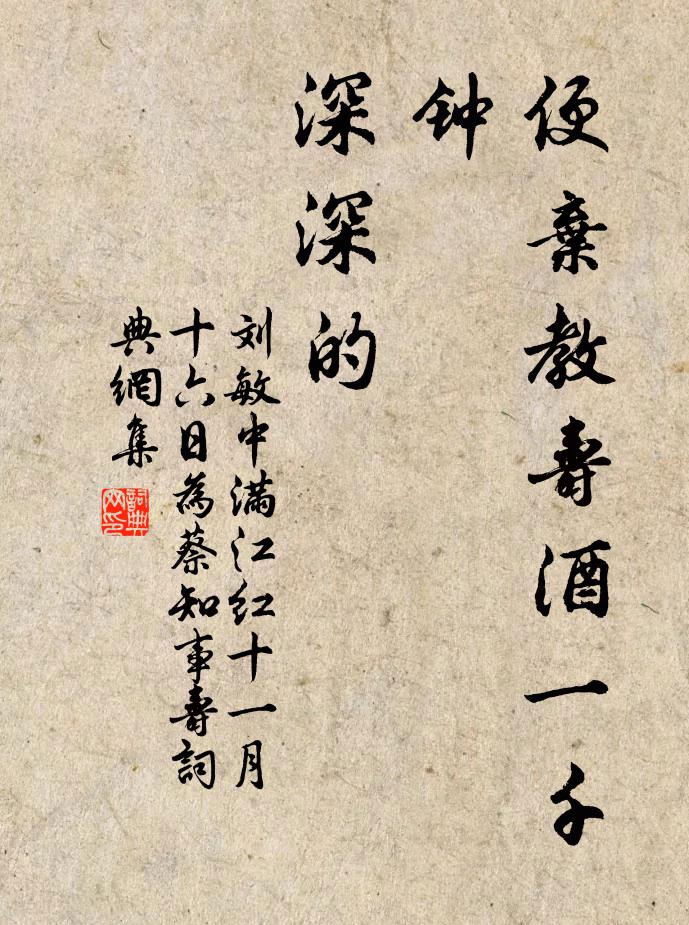 便棄教壽酒一千
钟
深深的
刘敏中满江红十一月
十六日為蔡知事壽詞
典網集
詞典
网印